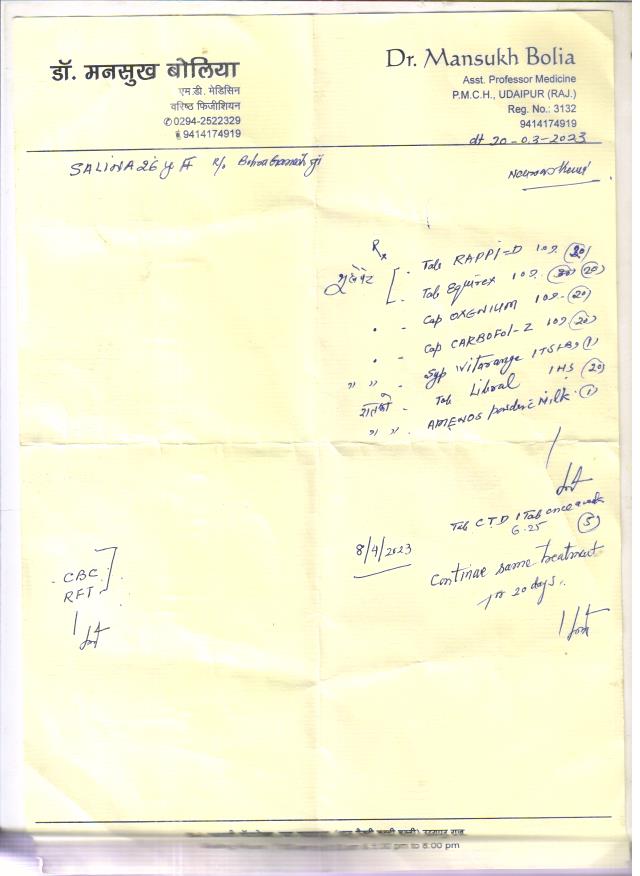 डॉ. मनसुख बोलिया
एम.डी. मेडिसिन
वरिष्ठ फिजीशियन
✆0294-2522329
9414174919
Dr. Mansukh Bolia
Asst. Professor Medicine
P.M.C.H., UDAIPUR (RAJ.)
Reg. No.: 3132
9414174919
dt 20-03-2023
SALINA 26 y F R/o
Rx
Tab RAPPI-D 10 (20)
Tab Equirex 10 (20)
Cap OXENIUM 10 (20)
Cap CARBOFOL-Z 10 (20)
" " - Syp Vitarange 1TSF (1)
Tab Liberal 1HS (20)
" " Milk (1)
Tab CTD 1 Tab once a week
6.25 (5)
8/4/2023
Continue same treatment
for 20 days.
CBC
RFT